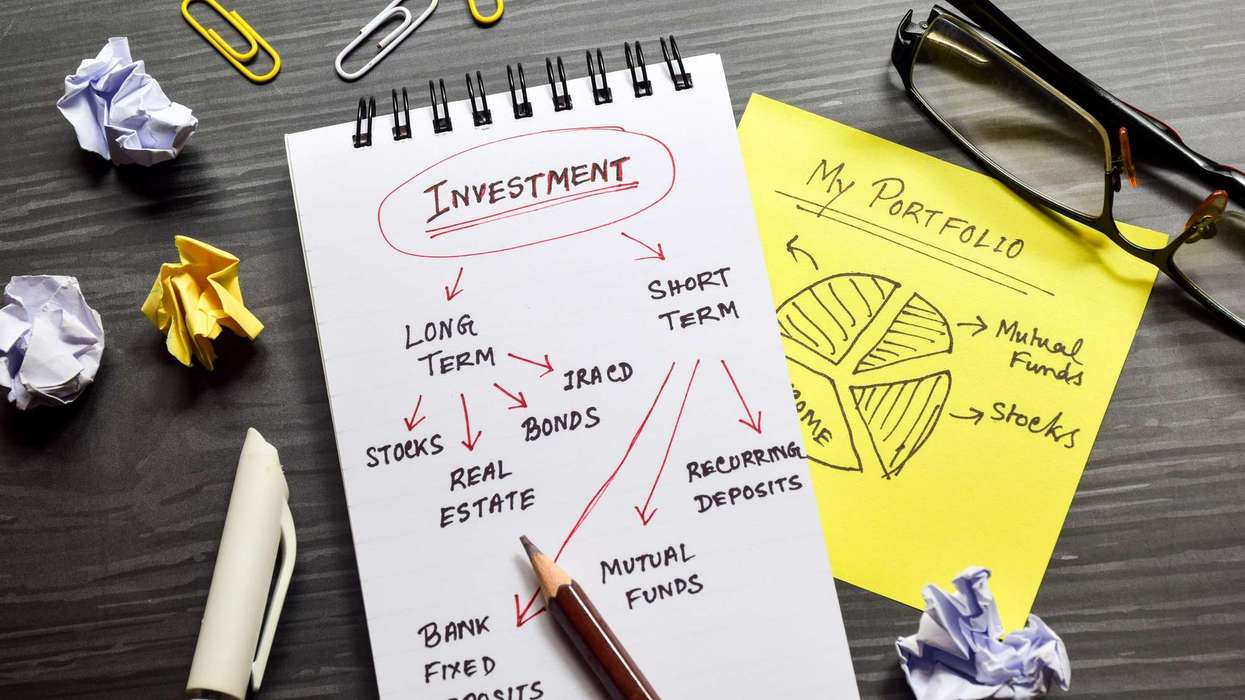 INVESTMENT
LONG
TERM
STOCKS
REAL
ESTATE
BONDS
IRA CD
SHORT
TERM
BANK
FIXED
MUTUAL
FUNDS
RECURRING
DEPOSITS
My PORTFOLIO
Mutual
Funds
Stocks